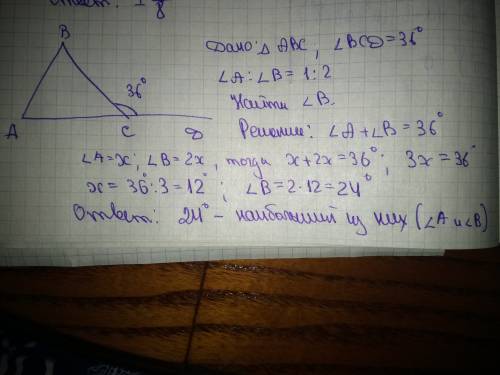 Ответ: 1/8
B
36°
A
C
D
Дано: Δ ABC, ∠BCD=36°
∠A:∠B=1:2
Найти ∠B.
Решение: ∠A+∠B=36°
∠A=x; ∠B=2x, тогда x+2x=36°; 3x=36°
x=36°:3=12°; ∠B=2·12=24°
Ответ: 24° – наибольший из них (∠A и ∠B)